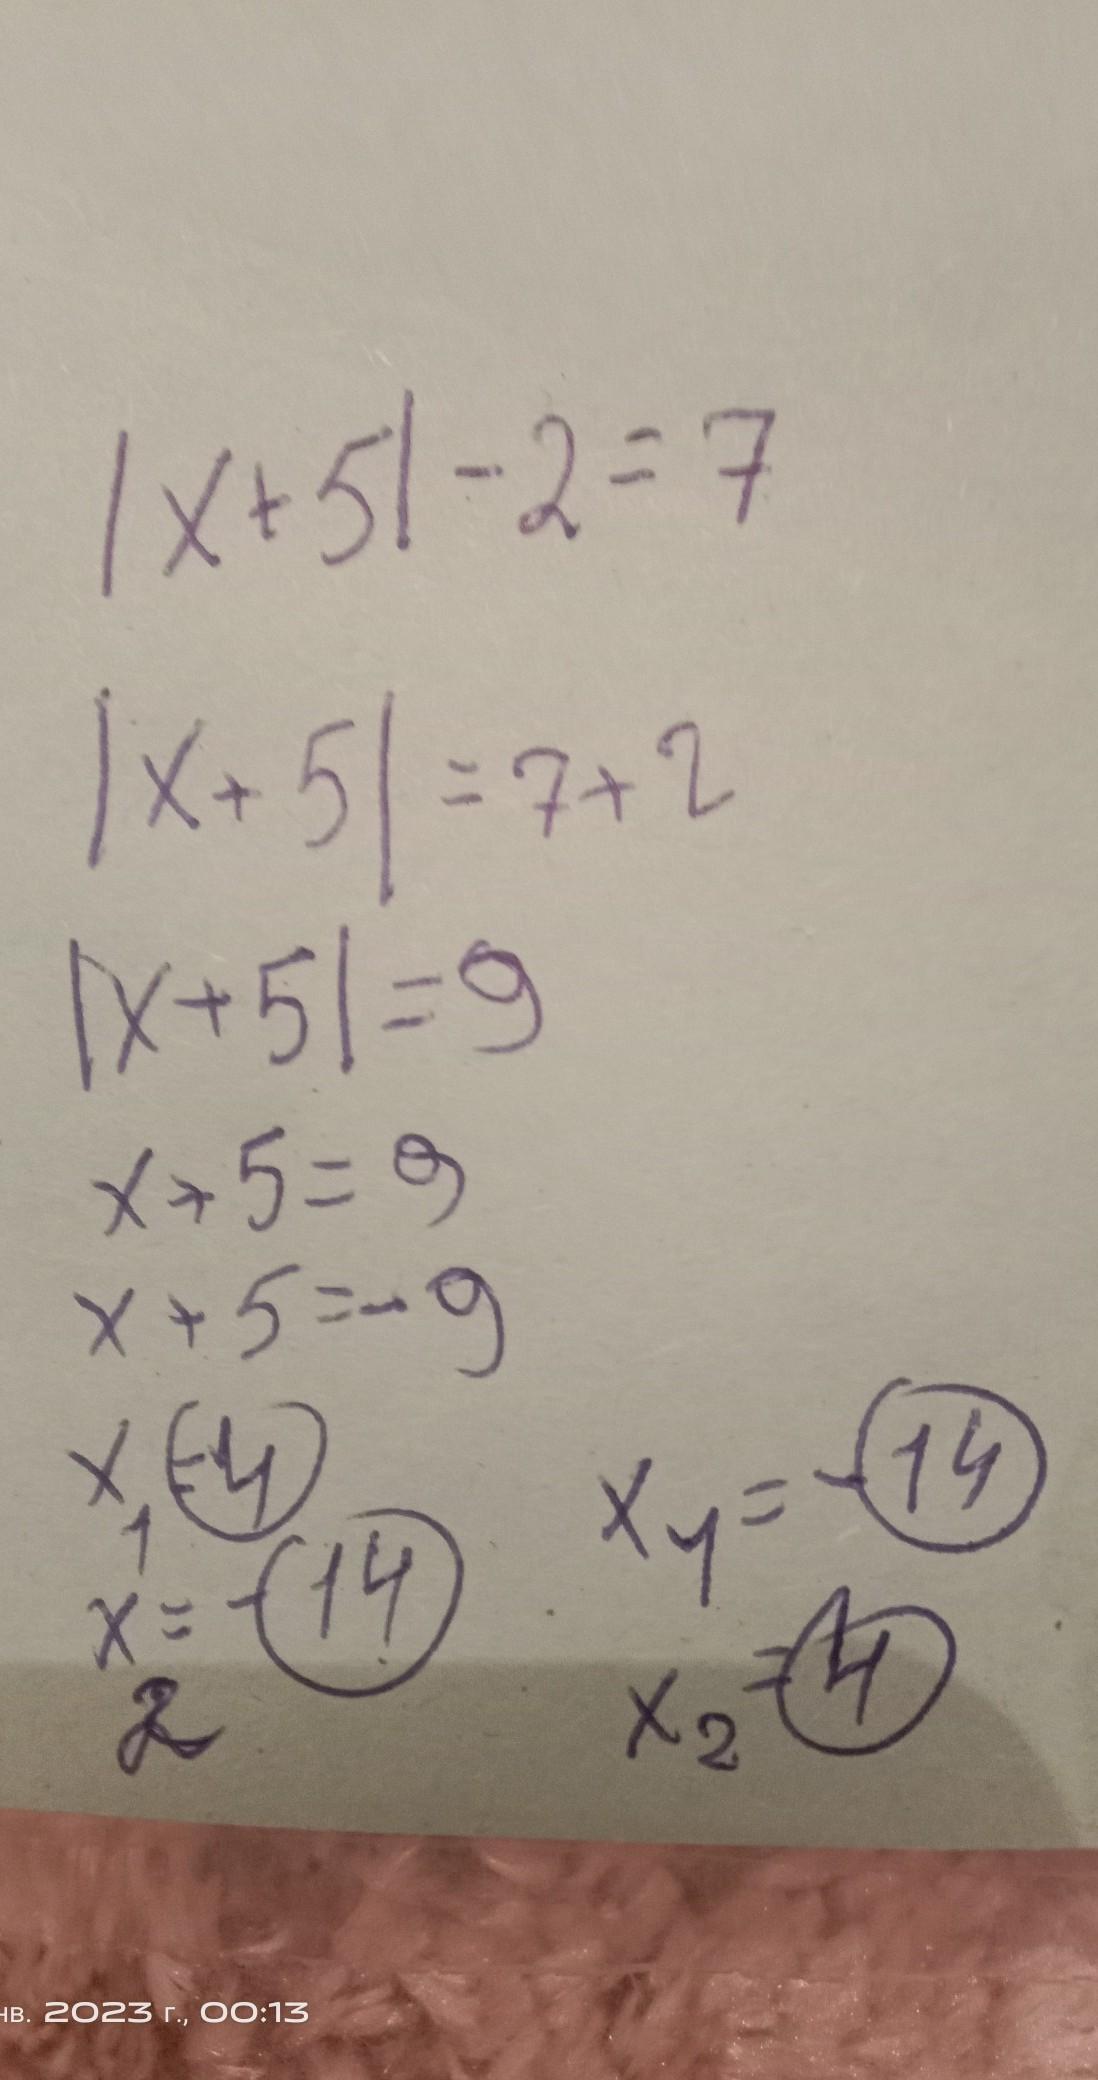 |x+5|-2=7
|x+5|=7+2
|x+5|=9
x+5=9
x+5=-9
x₁=4
x₂=-14
x₁=-14
x₂=4
нв. 2023 г., 00:13